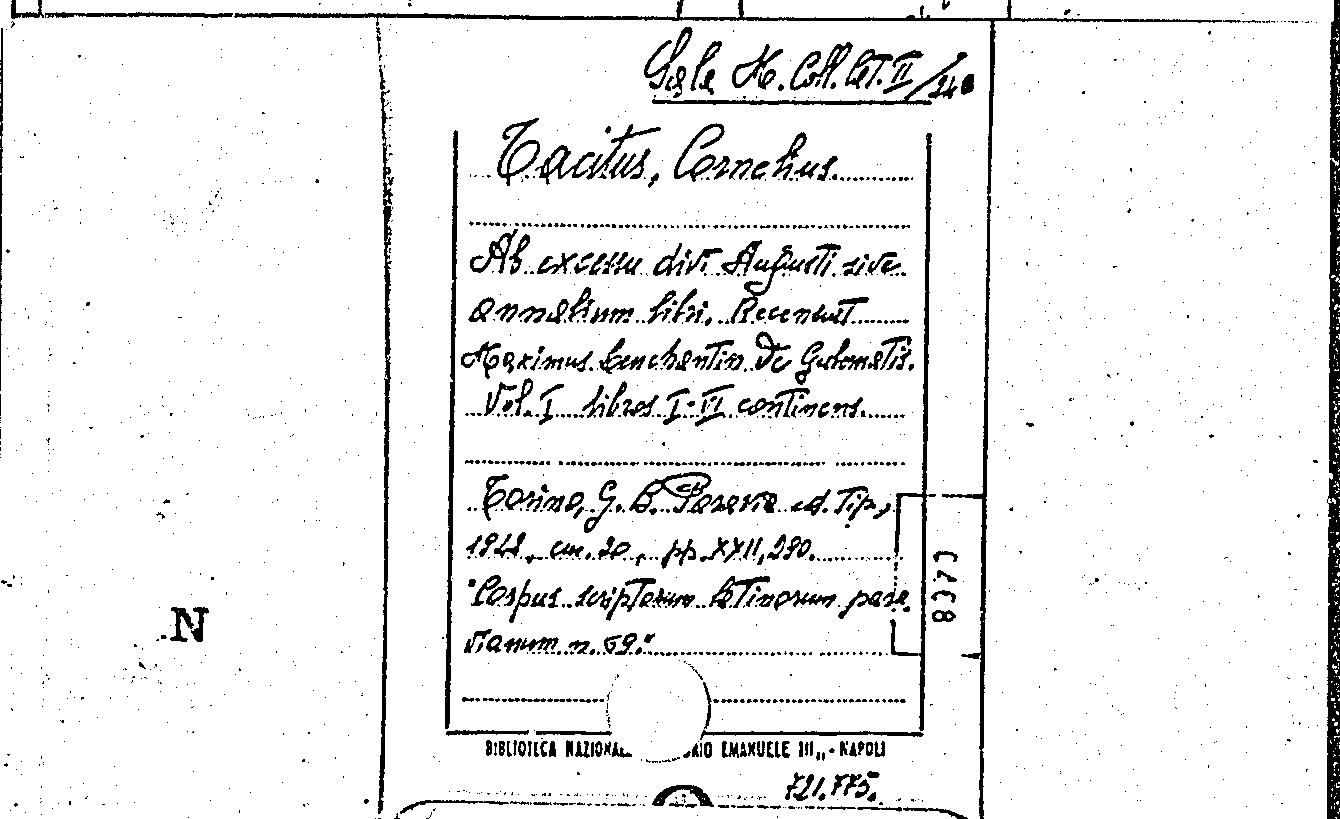 Sala H. Coll. lat. II/24
Tacitus, Cornelius.
Ab excessu divi Augusti sive
annalium libri. Recensuit
Maximus Lenchantin De Gubernatis.
Vol. I libros I-VI continens.
Torino, G. B. Paravia ed. tip,
cm. 20, pp. XXII, 290.
"Corpus scriptorum latinorum para
vianum n. 69."
8373
N
BIBLIOTECA NAZIONAL RIO EMANUELE III,, - NAPOLI
721.775.